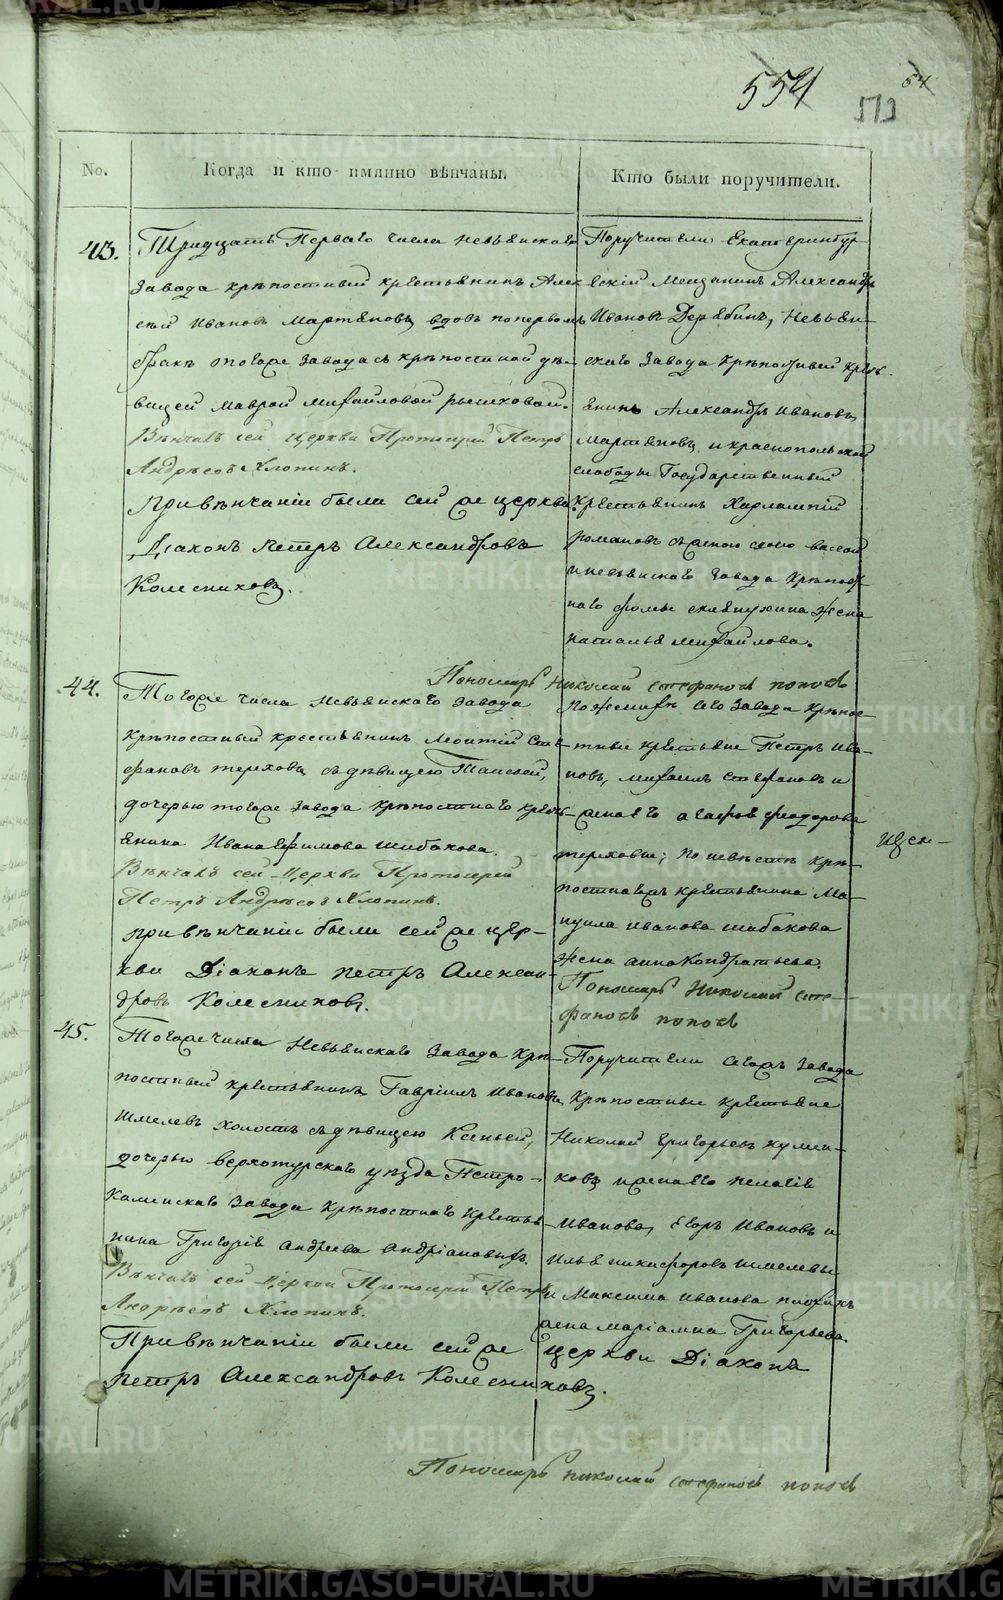 554
54
513
No.
Когда и кто имянно вѣнчаны.
Кто были поручители.
43.
Тридцать Перваго числа Невьянскаго
завода крѣпостный крестьянинъ Алек
сѣй Ивановъ Мартьяновъ вдовъ попервомъ
бракѣ тогоже завода съ крѣпостной дѣ-
вицей Маврой Михайловой
Вѣнчалъ сей Церкви Протоіерей Петръ
Андрѣевъ Хлопинъ.
При вѣнчаніи были сей же церкви
Діаконъ Петръ Александровъ
Колесниковъ.
Поручители Екатеринбур-
скій Мещанинъ Александръ
Ивановъ Дерябинъ, Невьян-
скаго завода крѣпостный крест.
янинъ Александръ Ивановъ
Мартьяновъ и краснопольской
слободы Государственный
крестьянинъ Харлампій
Романовъ съ женою своею Васой
и невьянскаго завода крѣпост-
наго Фомы жена
Наталья Михайлова.
Пономарь Николай Стефановъ Поповъ
44.
Тогоже числа Невьянскаго завода
крѣпостный крестьянинъ Леонтій Сте-
фановъ Тереховъ съ дѣвицею Таисьей,
дочерью тогоже завода крѣпостнаго крест-
янина Ивана Ефимова Шибакова.
Вѣнчалъ сей Церкви Протоіерей
Петръ Андрѣевъ Хлопинъ.
При вѣнчаніи были сей же цер-
кви Діаконъ Петръ Алексан-
дровъ Колесниковъ.
По женихѣ сего завода крѣпос-
тные крестьяне Петръ Ива-
новъ, Михаилъ Стефановъ и
жена его Агафья Феодорова
Тереховы; по невѣстѣ крѣ-
постнаго крестьянина Ма-
нуила Иванова Шибакова
жена Анна Кондратьева.
Пономарь Николай Сте-
фановъ Поповъ
45.
Тогоже числа Невьянскаго завода крѣ-
постный крестьянинъ Гавріилъ Ивановъ
Шмелевъ холостъ съ дѣвицею Ксеньей,
дочерью Верхотурскаго уѣзда Петро-
каменскаго завода крѣпостнаго крестья-
нина Григорія Андреева Андріановыхъ.
Вѣнчалъ сей Церкви Протоіерей Петръ
Андрѣевъ Хлопинъ.
При вѣнчаніи были сей же церкви Діаконъ
Петръ Александровъ Колесниковъ.
Поручители тогожъ завода
крѣпостные крестьяне
Николай Григорьевъ
и жена его Пелагія
Иванова, Егоръ Ивановъ и
Илья Никифоровъ Шмелевы
и Максима Иванова
жена Маріамна Григорьева.
Пономарь Николай Стефановъ Поповъ
METRIKI.GASO-URAL.RU